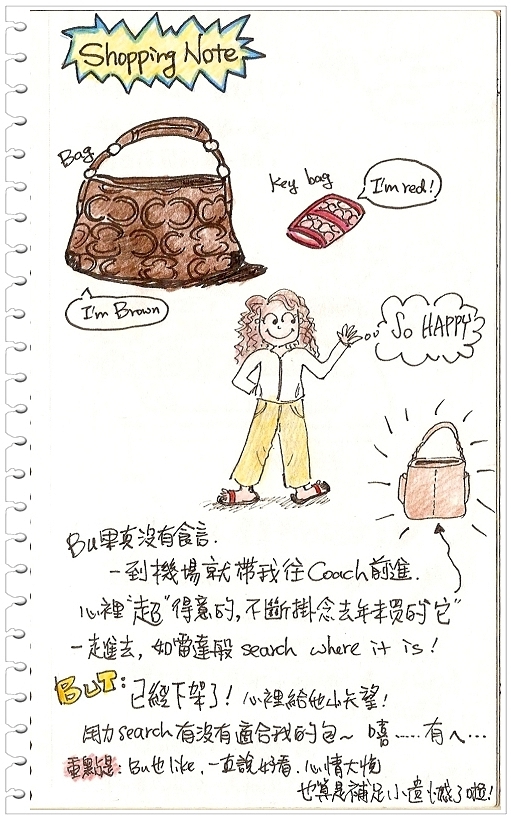 Shopping Note
Bag
Key bag
I'm red!
I'm Brown
So HAPPY
Bu果真沒有食言.
一到機場就帶我往Coach前進.
心裡"超"得意的,不斷掛念去年未買的"它"
一走進去,如雷達般 search where it is!
BUT:已經下架了! 心裡給他小失望!
用力search有沒有適合我的包~ 嘻......有ㄟ...
重點是:Bu也like,一直說好看.心情大悅
也算是補足小遺憾了啦!